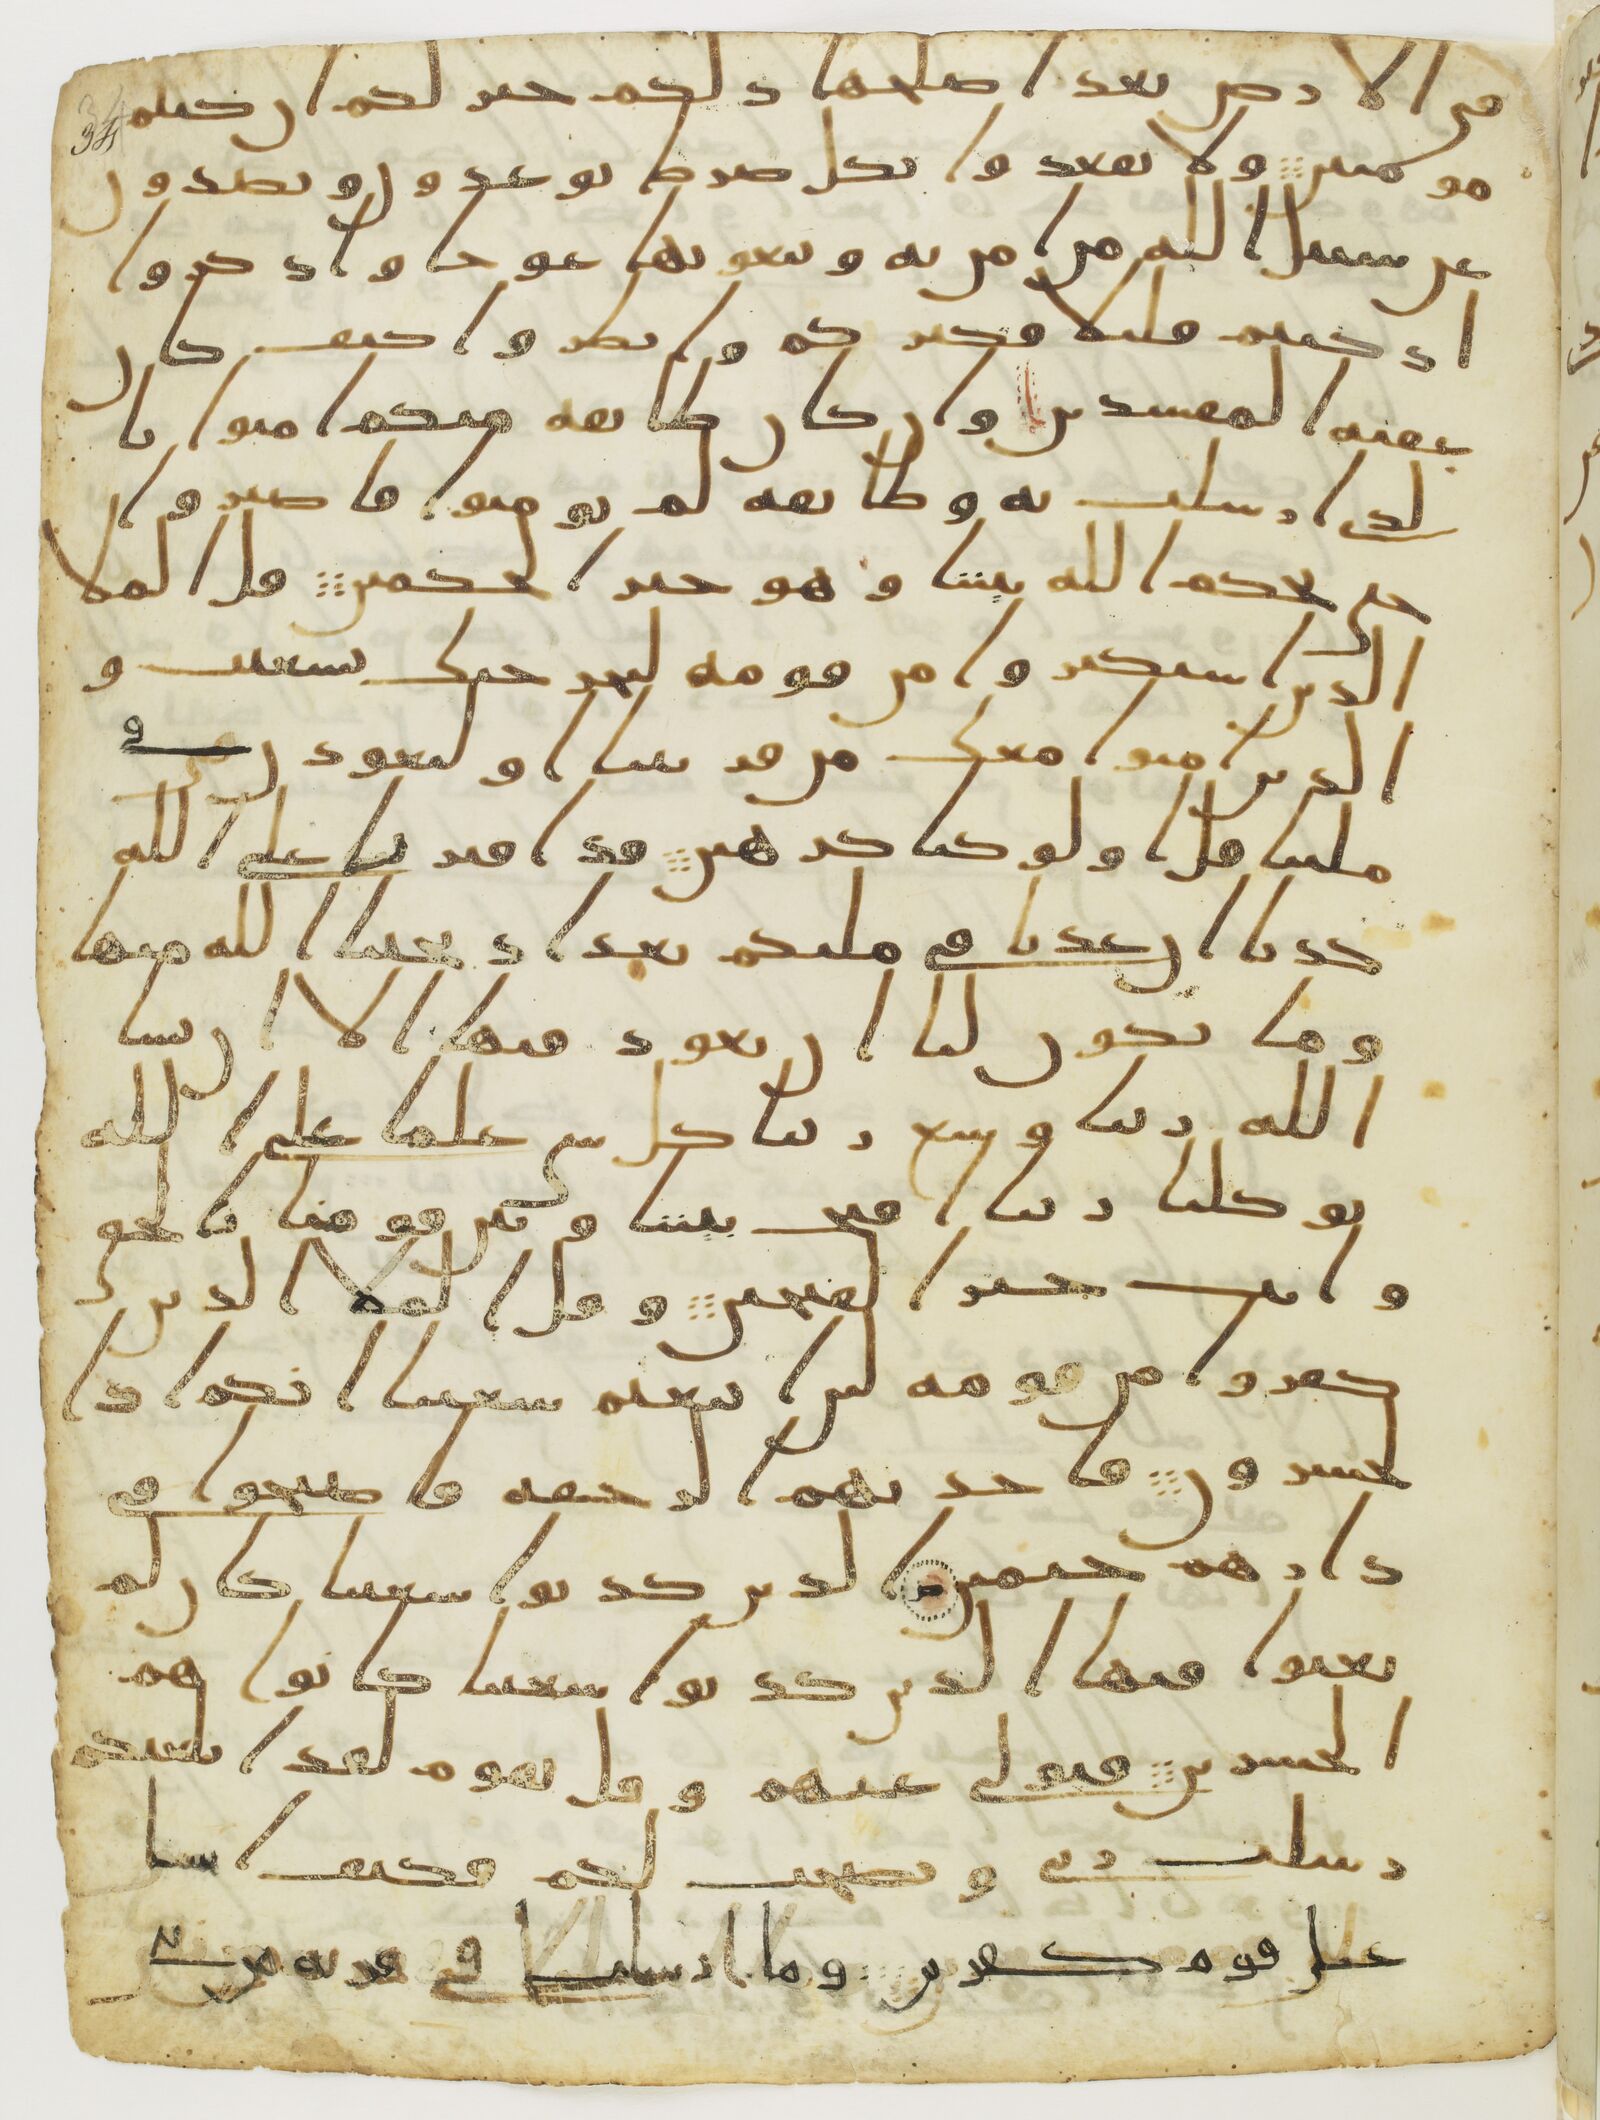 34
في الارض بعد اصلحها ذلكم خير لكم ان كنتم
مومنين ولا تقعدوا بكل صرط توعدون وتصدون
عن سبيل الله من امن به وتبغونها عوجا واذكروا
اذ كنتم قليلا فكثركم وانظروا كيف كان
عقبه المفسدين وان كان طايفه منكم امنوا با
لذي ارسلت به وطايفه لم يومنوا فاصبروا
حتى يحكم الله بيننا وهو خير الحكمين قل الملا
الذين استكبروا من قومه لنخرجنك يشعيب و
الذين امنوا معك من قريتنا او لتعودن في
ملتنا قل اولو كنا كرهين قد افترينا على الله
كذبا ان عدنا في ملتكم بعد اذ نجينا الله منها
وما يكون لنا ان نعود فيها الا ان يشا
الله ربنا وسع ربنا كل شي علما على الله
توكلنا ربنا افتح بيننا وبين قومنا بالحق
وانت خير الفتحين وقل الملا الذين
كفروا من قومه لين اتبعتم شعيبا انكم اذا
لخسرون فاخذتهم الرجفه فاصبحوا في
دارهم جثمين الذين كذبوا شعيبا كان لم
يغنوا فيها الذين كذبوا شعيبا كانوا هم
الخسرين فتولى عنهم وقل يقوم لقد ابلغتكم
رسلت ربي ونصحت لكم فكيف اسا
على قوم كفرين وما ارسلنا في قريه من